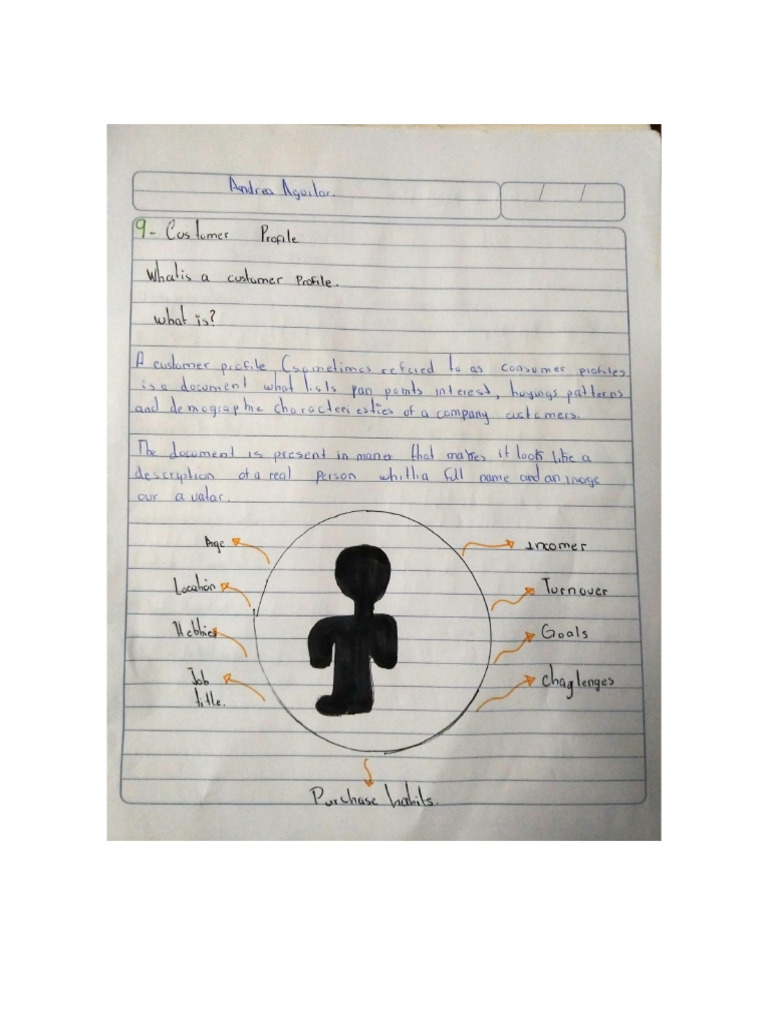 Andrea Aguilar.
9- Customer Profile
What is a customer Profile.
What is?
A customer profile, (sometimes refered to as consumer profiles
is a document what lists pan points interest, buyings patterns
and demographic characteriestics of a company customers.
The document is present in maner that makes it look like a
description of a real person whitha full name and an image
our avatar.
Age
Incomer
Location
Turnover
Hobbies
Goals
Job
title.
chaglenges
Purchase habits.